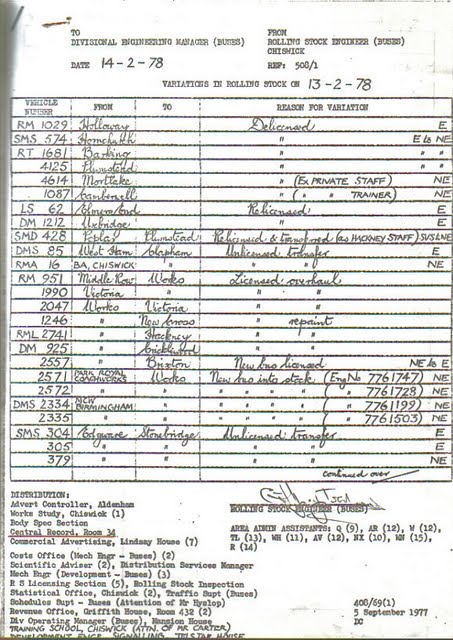 TO FROM
DIVISIONAL ENGINEERING MANAGER (BUSES) ROLLING STOCK ENGINEER (BUSES)
CHISWICK
DATE 14-2-78 REF: 508/1
VARIATIONS IN ROLLING STOCK ON 13-2-78
VEHICLE NUMBER FROM TO REASON FOR VARIATION
RM 1029 Holloway Delicensed E
SMS 574 Hornchurch " E to NE
RT 1681 Barking " " "
4125 Plumstead " " "
4614 Mortlake " (Ex PRIVATE STAFF) NE
1087 Camberwell " ( " " TRAINER) NE
LS 62 Elmers End Relicensed E
DM 1212 Uxbridge " E
SMD 428 Poplar Plumstead Relicensed & transferred (as HACKNEY STAFF) SVSLNE
DMS 85 West Ham Clapham Unlicensed transfer E
RMA 16 BA, CHISWICK " " of NE
RM 951 Middle Row Works Licensed overhaul
1990 Victoria " " "
2047 Works Victoria " "
1246 " New Cross " repaint
RML 2741 " Hackney " "
DM 925 " Cricklewood " "
2557 " Brixton New bus licensed NE to E
2571 PARK ROYAL COACHWORKS Works New bus into stock (Eng No 7761747) NE
2572 " " " " " " ( " 7761728) NE
DMS 2334 MCW BIRMINGHAM " " " " " ( " 7761199) NE
2335 " " " " " " ( " 7761503) NE
SMS 304 Edgware Stonebridge Unlicensed transfer E
305 " " " " E
379 " " " " NE
continued over
DISTRIBUTION:
Advert Controller, Aldenham
Works Study, Chiswick (1)
Body Spec Section
Central Record, Room 34
Commercial Advertising, Lindsay House (7)
Costs Office (Mech Engr - Buses) (2)
Scientific Adviser (2), Distribution Services Manager
Mech Engr (Development - Buses) (3)
R S Licensing Section (5), Rolling Stock Inspection
Statistical Office, Chiswick (2), Traffic Supt (Buses)
Schedules Supt - Buses (Attention of Mr Hyslop)
Revenue Office, Griffith House, Room 432 (2)
Div Operating Manager (Buses), Mansion House
TRAINING SCHOOL, CHISWICK (ATTN. OF MR CARTER)
DEVELOPMENT ENGR SIGNALLING TELSTAR HOUSE
ROLLING STOCK ENGINEER (BUSES)
AREA ADMIN ASSISTANTS: Q (9), AR (12), W (12),
TL (13), WH (11), AV (12), NX (10), WN (15),
R (14)
408/69(1)
5 September 1977
DC